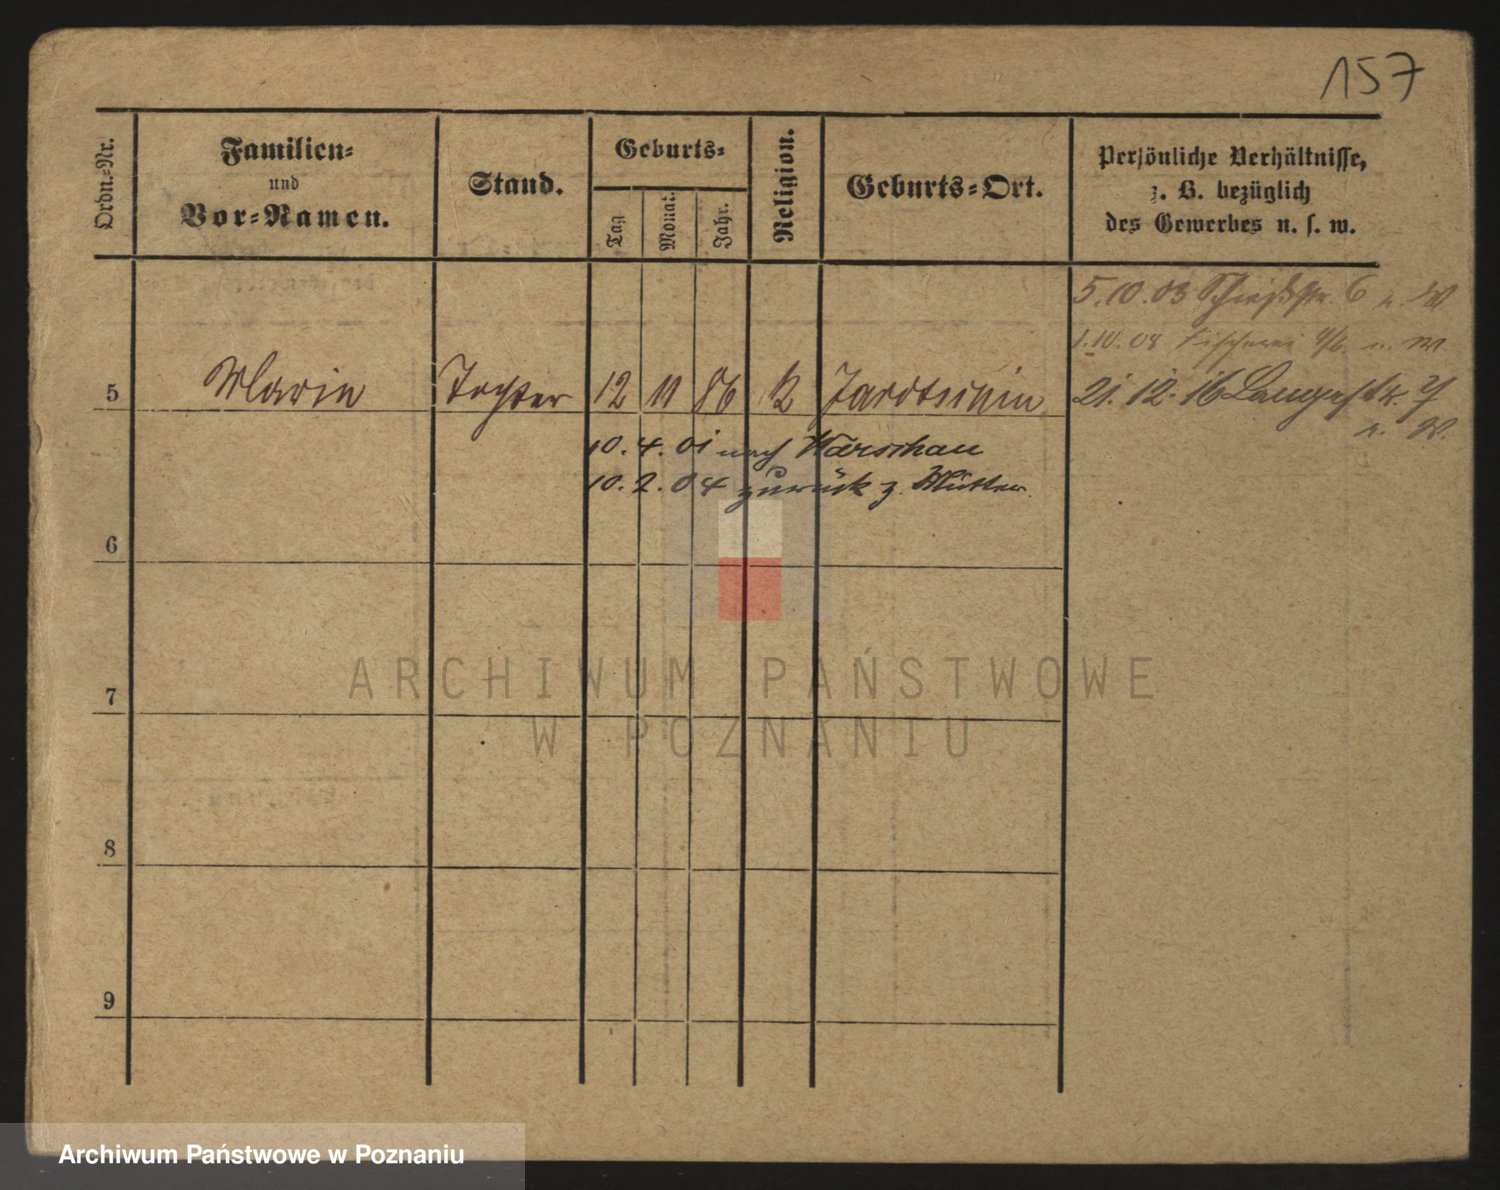 157
Ordn.-Nr.
Familien-
und
Vor-Namen.
Stand.
Geburts-
Tag
Monat.
Jahr.
Religion.
Geburts-Ort.
Persönliche Verhältnisse,
z. B. bezüglich
des Gewerbes u. s. w.
5.10.03 Schießstr. 6 n. W
1.10.08 Fischerei n. W.
5 Marie Tochter 12 11 86 K Jarotschin
21.12.16 Langestr. 7
n. W.
10.4.01 nach Warschau
10.2.04 zurück z. Mutter.
6
7
8
9
ARCHIWUM PAŃSTWOWE
W POZNANIU
Archiwum Państwowe w Poznaniu